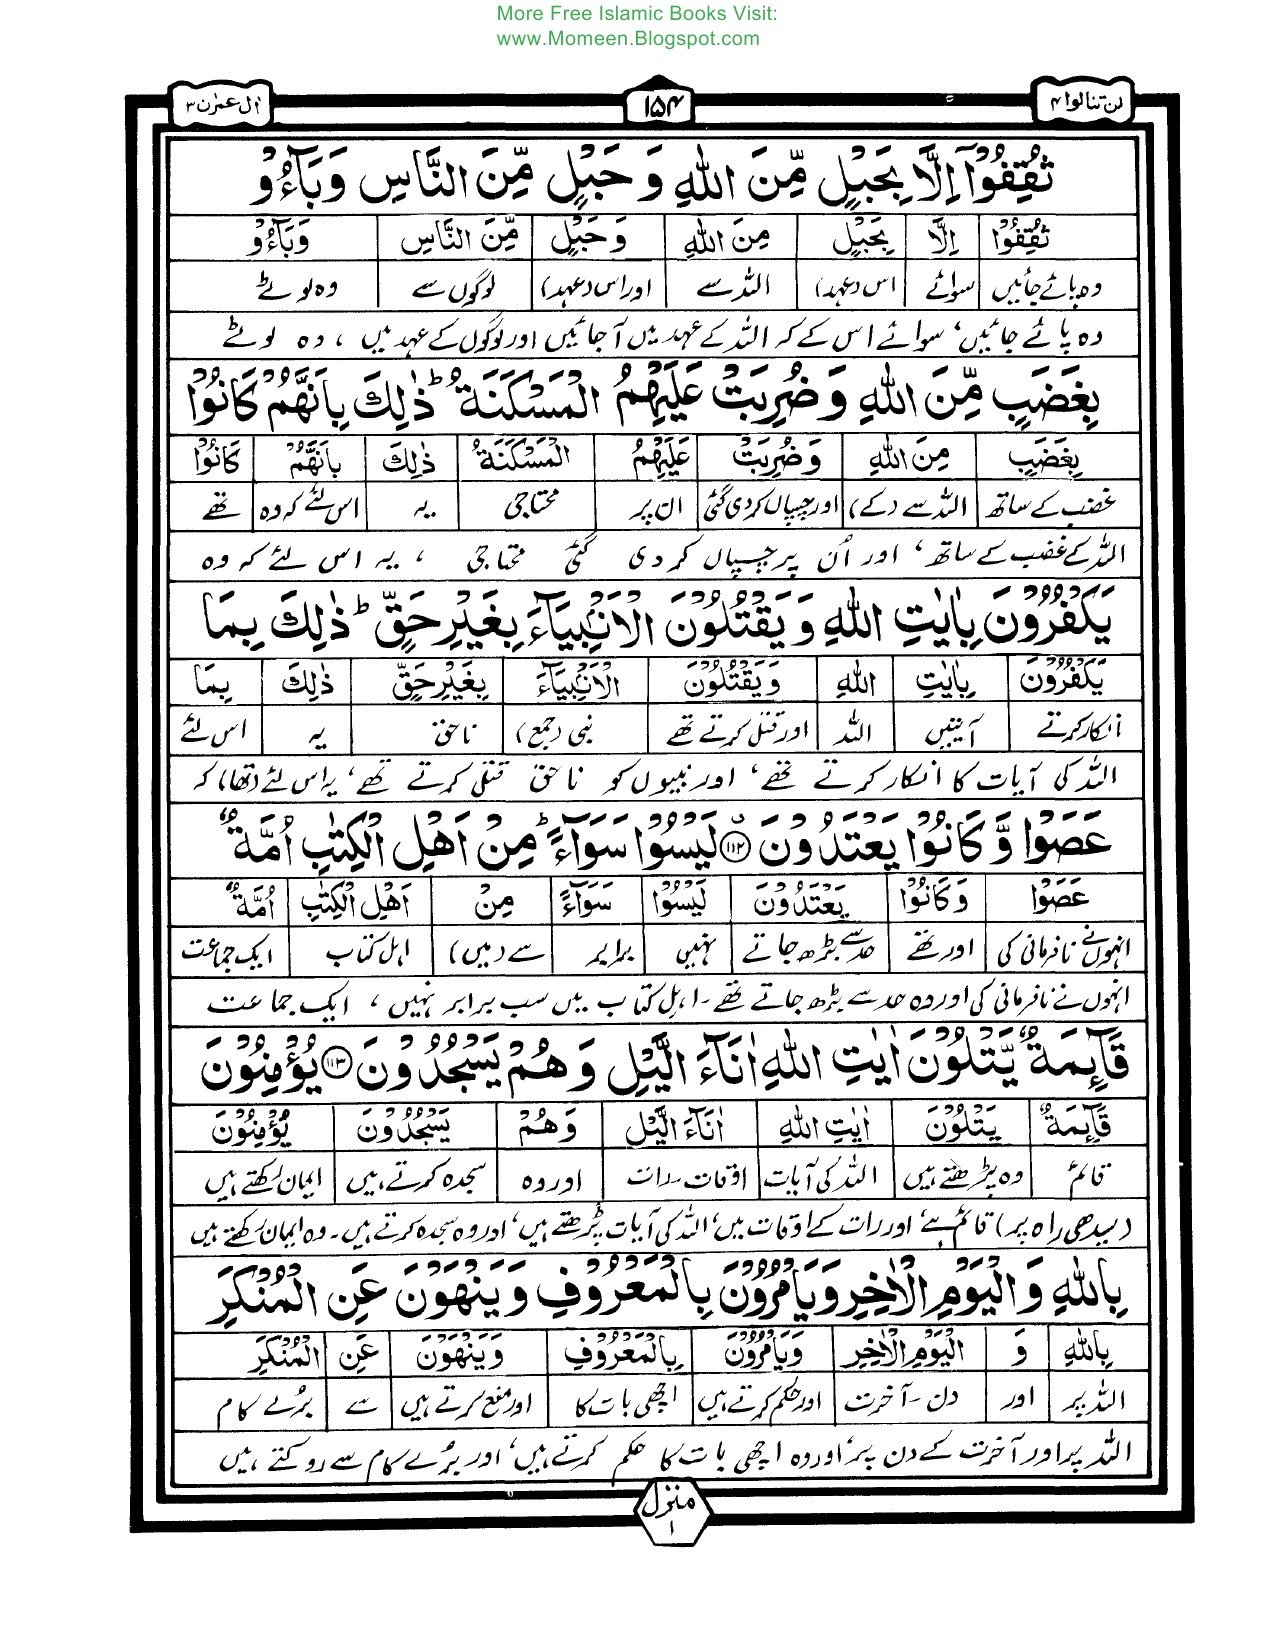 More Free Islamic Books Visit:
www.Momeen.Blogspot.com
لن تنالوا ۴ ۱۵۴ اٰل عمرٰن ۳
ثُقِفُوْۤا اِلَّا بِحَبْلٍ مِّنَ اللّٰهِ وَ حَبْلٍ مِّنَ النَّاسِ وَبَآءُوْ
ثُقِفُوْا اِلَّا بِحَبْلٍ مِنَ اللّٰهِ وَ حَبْلٍ مِّنَ النَّاسِ وَبَآءُوْ
وہ پائے جائیں سوائے اس (عہد) اللہ سے اور اس (عہد) لوگوں سے وہ لوٹے
وہ پائے جائیں، سوائے اس کے کہ اللہ کے عہد میں آ جائیں اور لوگوں کے عہد میں ، وہ لوٹے
بِغَضَبٍ مِّنَ اللّٰهِ وَ ضُرِبَتْ عَلَيْهِمُ الْمَسْكَنَةُ ؕ ذٰلِكَ بِاَنَّهُمْ كَانُوْا
بِغَضَبٍ مِنَ اللّٰهِ وَضُرِبَتْ عَلَيْهِمُ الْمَسْكَنَةُ ذٰلِكَ بِاَنَّهُمْ كَانُوْا
غضب کے ساتھ اللہ سے (کے) اور چسپاں کر دی گئی ان پر محتاجی یہ اس لئے کہ وہ تھے
اللہ کے غضب کے ساتھ، اور اُن پر چسپاں کر دی گئی محتاجی ، یہ اس لئے کہ وہ
يَكْفُرُوْنَ بِاٰيٰتِ اللّٰهِ وَ يَقْتُلُوْنَ الْاَنْۢبِيَآءَ بِغَيْرِ حَقٍّ ؕ ذٰلِكَ بِمَا
يَكْفُرُوْنَ بِاٰيٰتِ اللّٰهِ وَيَقْتُلُوْنَ الْاَنْۢبِيَآءَ بِغَيْرِ حَقٍّ ذٰلِكَ بِمَا
انکار کرتے آیتیں اللہ اور قتل کرتے تھے نبی (جمع) ناحق یہ اس لئے
اللہ کی آیات کا انکار کرتے تھے، اور نبیوں کو ناحق قتل کرتے تھے، یہ اس لئے (تھا) کہ
عَصَوْا وَّ كَانُوْا يَعْتَدُوْنَ ۱۱۲ لَيْسُوْا سَوَآءً ؕ مِنْ اَهْلِ الْكِتٰبِ اُمَّةٌ
عَصَوْا وَ كَانُوْا يَعْتَدُوْنَ لَيْسُوْا سَوَآءً مِنْ اَهْلِ الْكِتٰبِ اُمَّةٌ
انہوں نے نافرمانی کی اور تھے حد سے بڑھ جاتے نہیں برابر سے (میں) اہل کتاب ایک جماعت
انہوں نے نافرمانی کی اور وہ حد سے بڑھ جاتے تھے ۔ اہل کتاب میں سب برابر نہیں ، ایک جماعت
قَآئِمَةٌ يَّتْلُوْنَ اٰيٰتِ اللّٰهِ اٰنَآءَ الَّيْلِ وَ هُمْ يَسْجُدُوْنَ ۱۱۳ يُؤْمِنُوْنَ
قَآئِمَةٌ يَتْلُوْنَ اٰيٰتِ اللّٰهِ اٰنَآءَ الَّيْلِ وَ هُمْ يَسْجُدُوْنَ يُؤْمِنُوْنَ
قائم وہ پڑھتے ہیں اللہ کی آیات اوقات ۔ رات اور وہ سجدہ کرتے ہیں ایمان رکھتے ہیں
(سیدھی راہ پر) قائم ہے، اور رات کے اوقات میں، اللہ کی آیات پڑھتے ہیں، اور وہ سجدہ کرتے ہیں ۔ وہ ایمان رکھتے ہیں
بِاللّٰهِ وَ الْيَوْمِ الْاٰخِرِ وَيَاْمُرُوْنَ بِالْمَعْرُوْفِ وَيَنْهَوْنَ عَنِ الْمُنْكَرِ
بِاللّٰهِ وَ الْيَوْمِ الْاٰخِرِ وَيَاْمُرُوْنَ بِالْمَعْرُوْفِ وَيَنْهَوْنَ عَنِ الْمُنْكَرِ
اللہ پر اور دن ۔ آخرت اور حکم کرتے ہیں اچھی بات کا اور منع کرتے ہیں سے بُرے کام
اللہ پر اور آخرت کے دن پر، اور وہ اچھی بات کا حکم کرتے ہیں، اور بُرے کام سے روکتے ہیں
منزل
۱